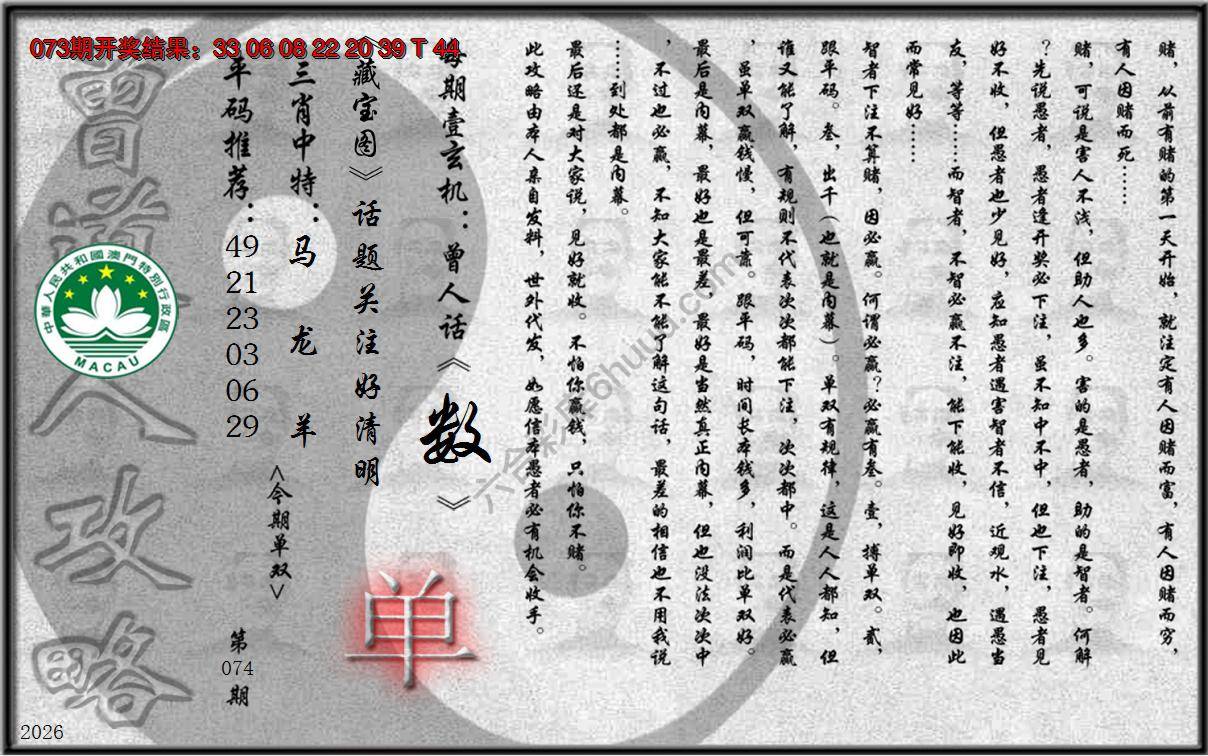 073期开奖结果：33 06 08 22 20 39 T 44
赌，从前有赌的第一天开始，就注定有人因赌而富，有人因赌而穷，
有人因赌而死……
赌，可说是害人不浅，但助人也多。害的是愚者，助的是智者。何解
？先说愚者，愚者逢开奖必下注，虽不知中不中，但也下注，愚者见
好不收，但愚者也少见好，应知愚者遇害智者不信，近观水，遇愚当
友，等等……而智者，不智必赢不注，能下能收，见好即收，也因此
而常见好……
智者下注不算赌，因必赢。何谓必赢？必赢有叁。壹，搏单双。贰，
跟平码。叁，出千（也就是内幕）。单双有规律，这是人人都知，但
谁又能了解，有规则不代表次次都能下注，次次都中。而是代表必赢
，虽单双赢钱慢，但可靠。跟平码，时间长本钱多，利润比单双好。
最后是内幕，最好也是最差，最好是当然真正内幕，但也没法次次中
，不过也必赢，不知大家能不能了解这句话，最差的相信也不用我说
……到处都是内幕。
最后还是对大家说，见好就收。不怕你赢钱，只怕你不赌。
此攻略由本人亲自发料，世外代发，如愿信本愚者必有机会收手。
每期壹玄机：曾人话《数》
《藏宝图》话题关注好清明
单
三肖中特：马 龙 羊
<今期单双>
平码推荐：49 21 23 03 06 29
第074期
曾道人攻略
中華人民共和國澳門特別行政區
MACAU
六合彩库6huuu.com
2026